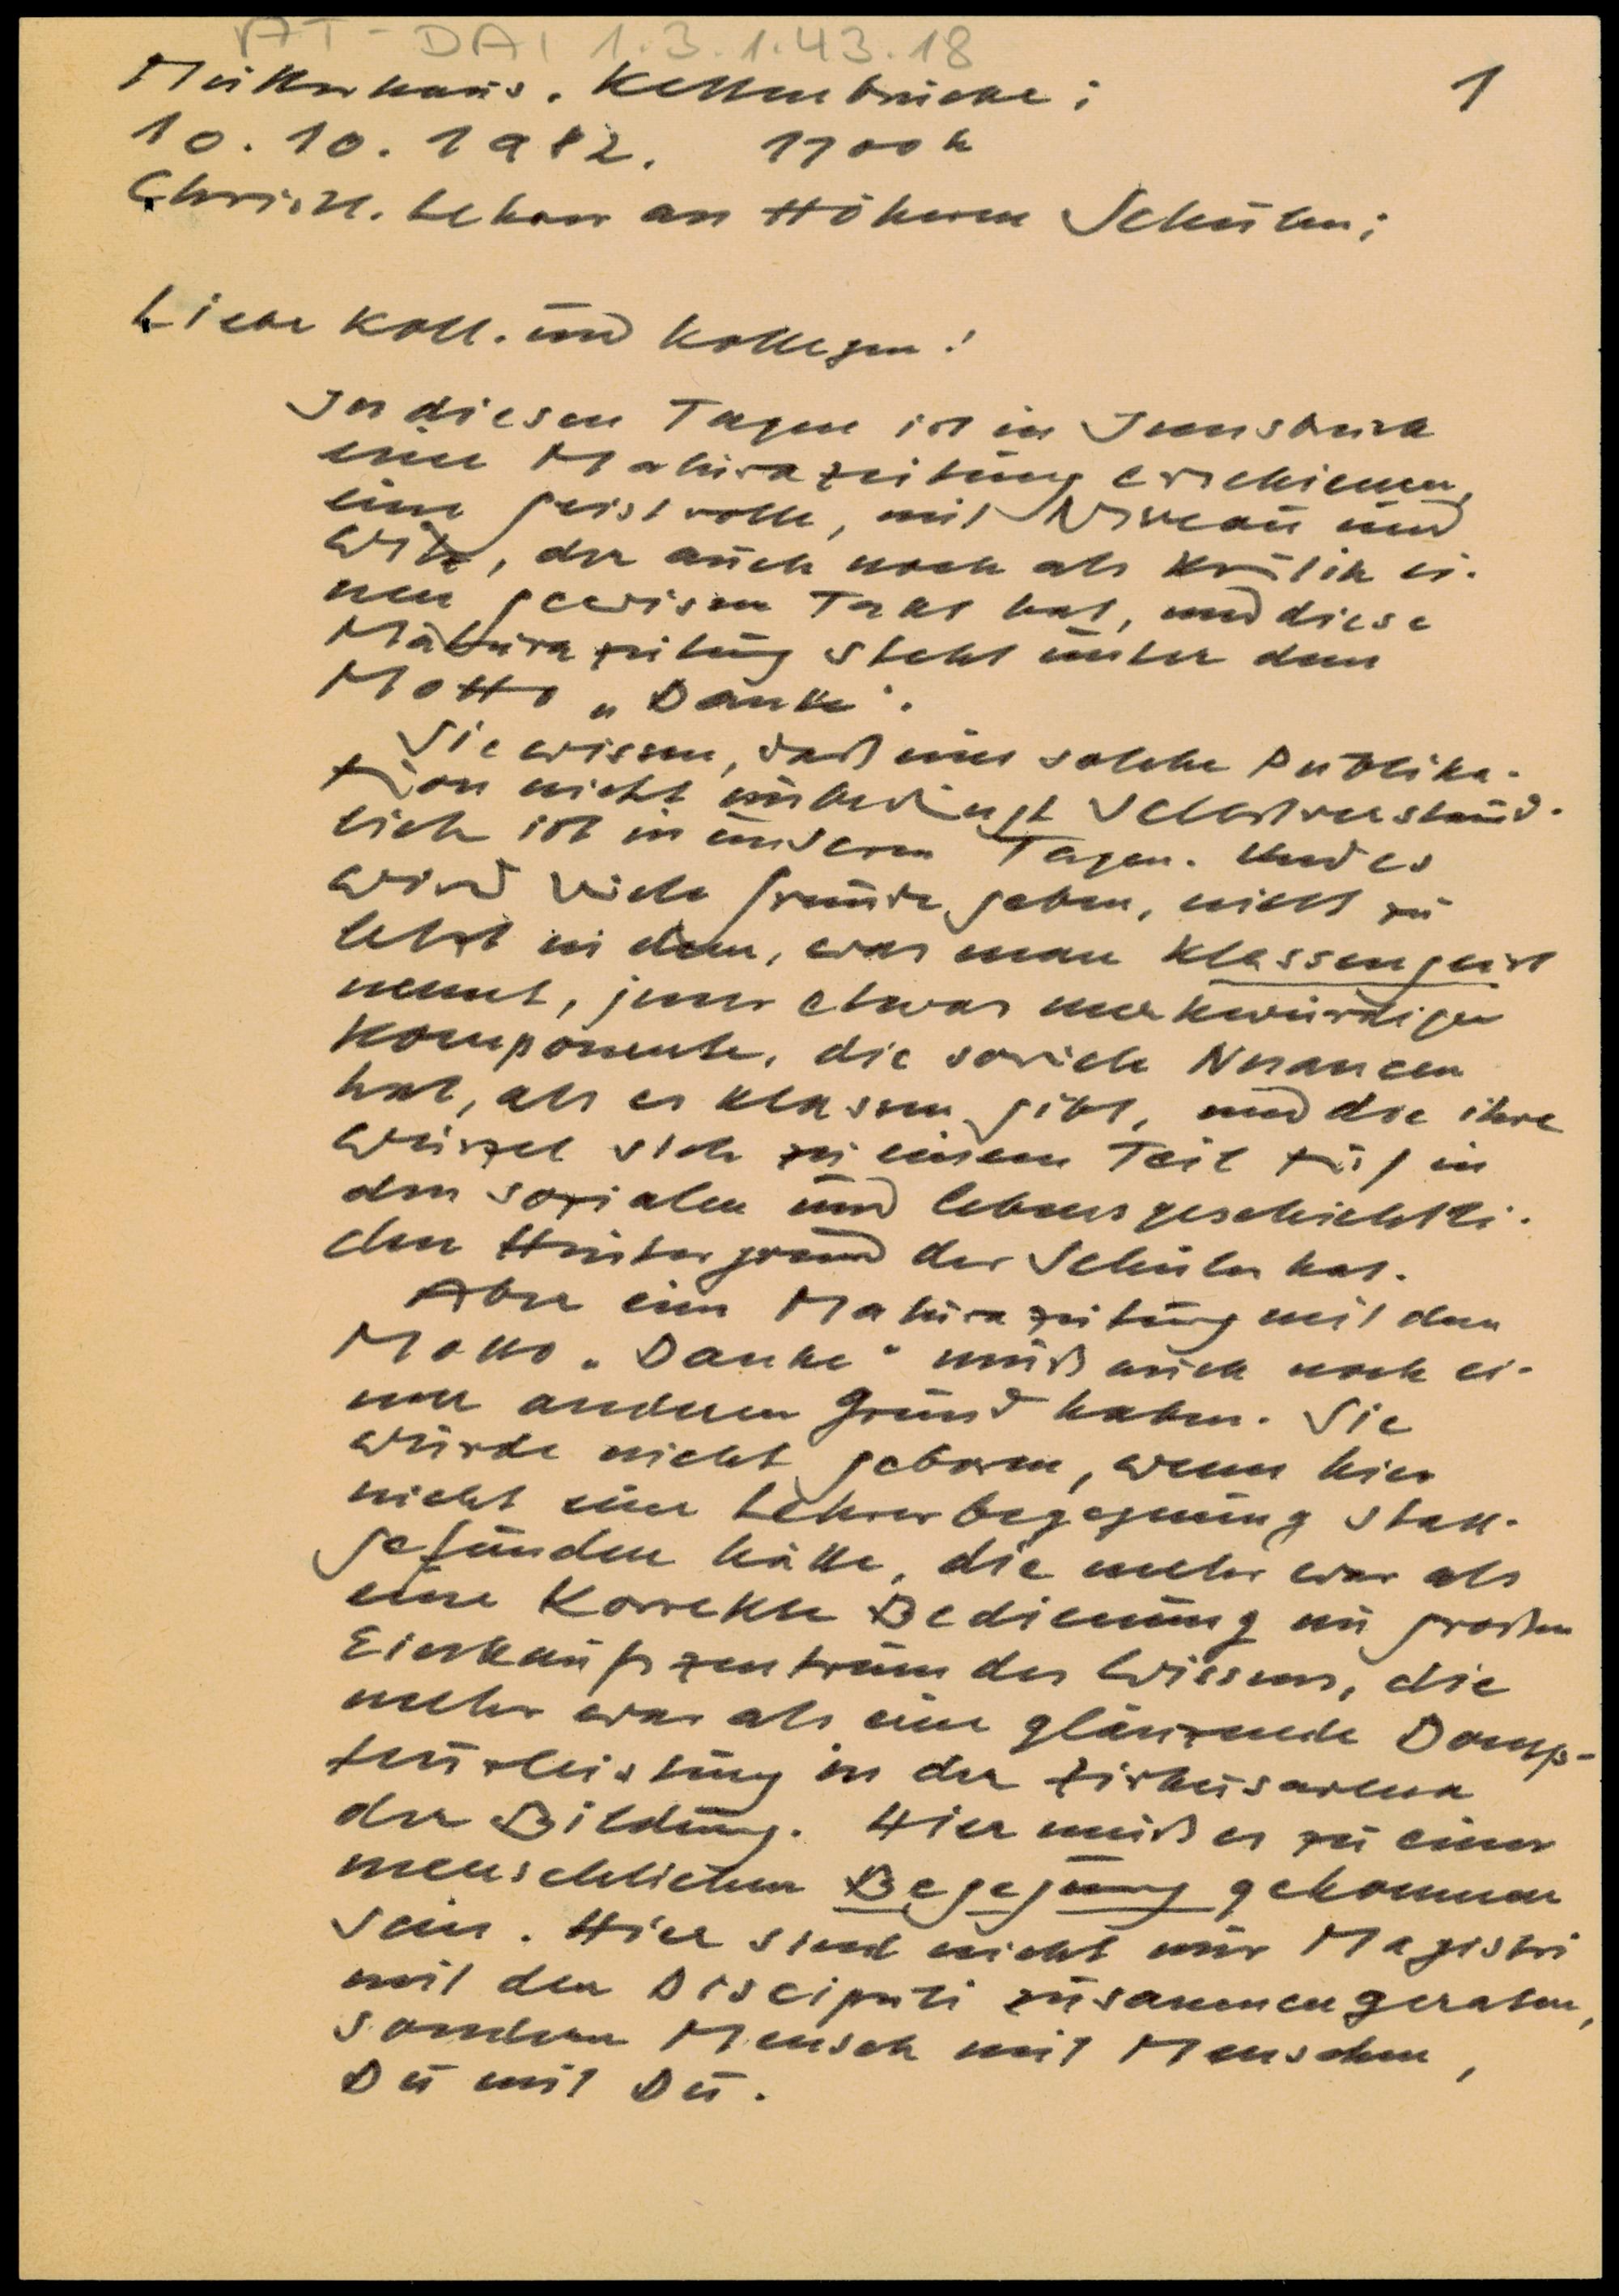 AT-DAI 1.3.1.43.18
Mutterhaus. Kettenbrücke; 1
10.10.1982. 1700h
Christl. Lehrer an Höheren Schulen;
Liebe Koll. und Kollegen!
In diesen Tagen ist in Innsbruck
eine Maturazeitung erschienen,
eine geistvolle, mit Niveau und
Witz, der auch noch als Kritik ei-
nen gewissen Takt hat, und diese
Maturazeitung steht unter dem
Motto „Danke".
Sie wissen, daß eine solche Publika-
tion nicht unbedingt selbstverständ-
lich ist in unseren Tagen. Und es
wird viele Gründe geben, nicht zu
letzt in dem, was man Klassengeist
nennt, jener etwas merkwürdigen
Komponente, die soviele Nuancen
hat, als es Klassen gibt, und die ihre
Wurzel sich zu einem Teil tief in
den sozialen und lebensgeschichtli-
chen Hintergrund der Schüler hat.
Aber eine Maturazeitung mit dem
Motto „Danke" muß auch noch ei-
nen anderen Grund haben. Sie
würde nicht geboren, wenn hier
nicht eine Lehrerbegegnung statt-
gefunden hätte, die mehr war als
eine korrekte Bedienung im großen
Einkaufszentrum des Wissens, die
mehr war als eine glänzende Domp-
teurleistung in der Zirkusarena
der Bildung. Hier muß es zu einer
menschlichen Begegnung gekommen
sein. Hier sind nicht nur Magistri
mit den Discipuli zusammengeraten,
sondern Mensch mit Menschen,
Du mit Du.